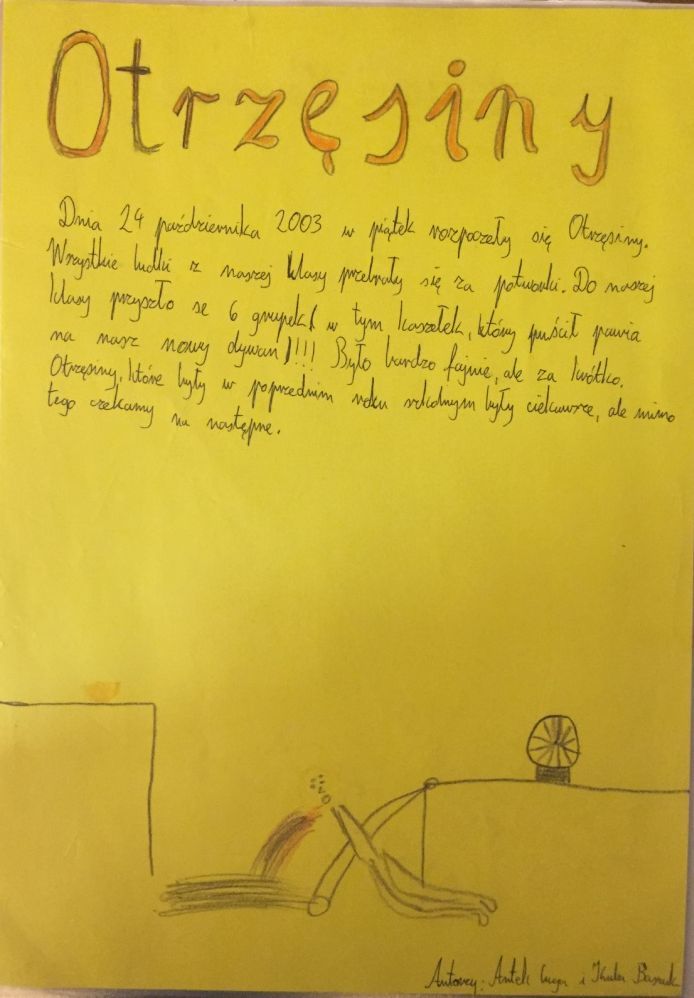 Otrzęsiny
Dnia 24 października 2003 w piątek rozpoczeły się Otrzęsiny.
Wszystkie ludki z naszej klasy przebrały się za potworki. Do naszej
klasy przyszło se 6 grupek( w tym kaszełek, który puścił pawia
na nasz nowy dywan)!!! Było bardzo fajnie, ale za krótko.
Otrzęsiny, które były w poprzednim roku szkolnym były ciekawsze, ale mimo
tego czekamy na następne.
Autorzy: Antek i Kuba